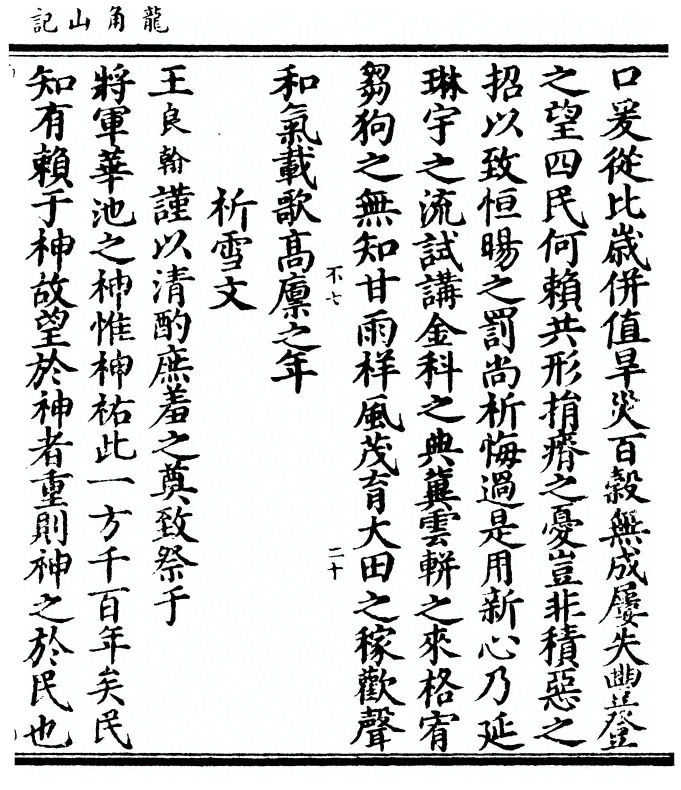 龍角山記
口爰從比歲併值旱災百穀無成屢失豐登
之望四民何賴共形捐瘠之憂豈非積惡之
招以致恒暘之罰尚祈悔過是用新心乃延
琳宇之流試講金科之典冀雲軿之來格宥
芻狗之無知甘雨祥風茂育大田之稼歡聲
不七
二十
和氣載歌高廪之年
祈雪文
王良翰謹以清酌庶羞之奠致祭于
將軍華池之神惟神祐此一方千百年矣民
知有賴于神故望於神者重則神之於民也